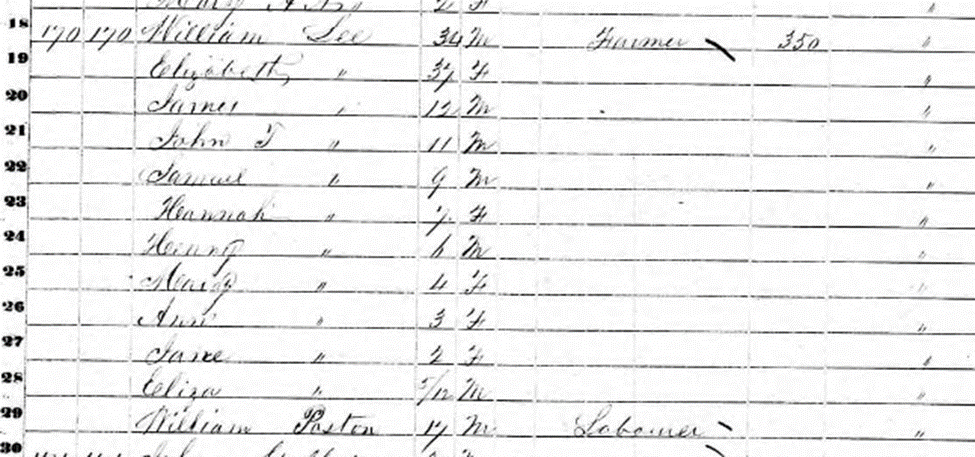 18
170 170 William Lee 34 M Farmer 350 "
19
Elizabeth " 37 F "
20
James " 12 M "
21
John T " 11 M "
22
Samuel " 9 M "
23
Hannah " 7 F "
24
Henry " 6 M "
25
Mary " 4 F "
26
Ann " 3 F "
27
Jane " 2 F "
28
Eliza " 5/12 M "
29
William Poston 17 M Labourer "
30